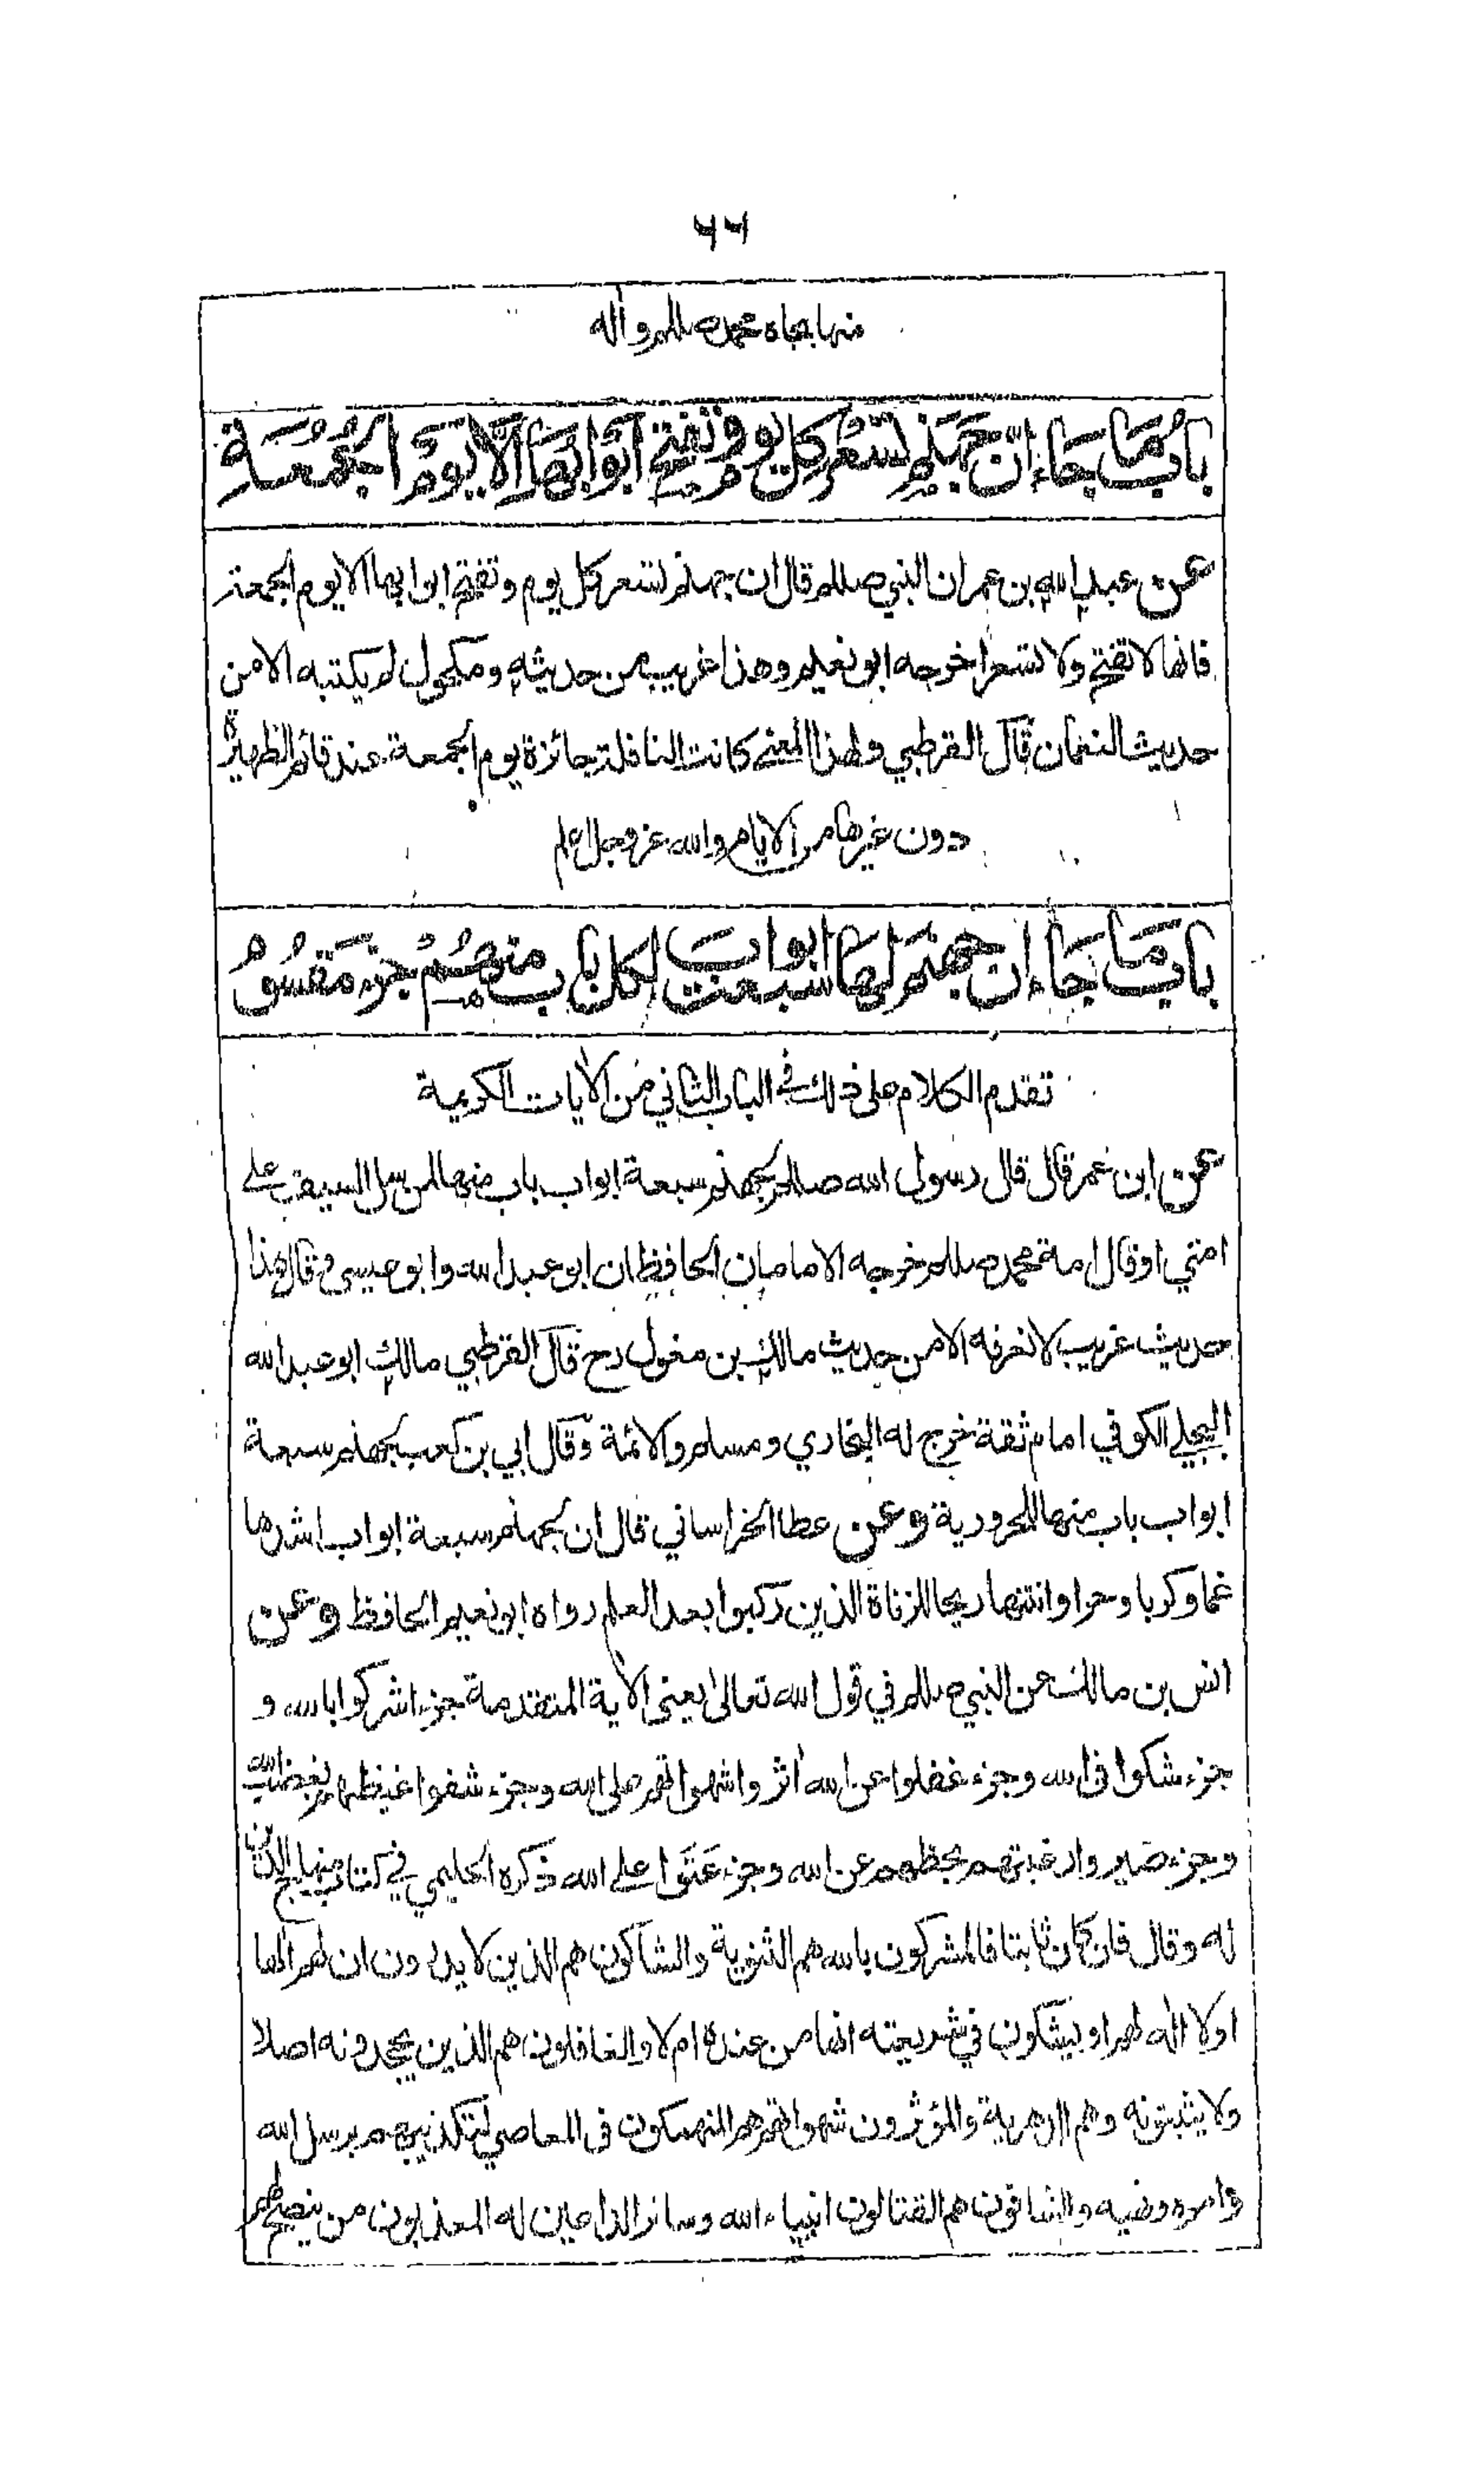 ٤٤
منها بجاه محمد صللم وآله
باب ما جاء ان جهنم تسعر كل يوم وتفتح ابوابها الا يوم الجمعة
عن عبد الله بن عمر ان النبي صللم قال ان جهنم تسعر كل يوم وتفتح ابوابها الا يوم الجمعة
فانها لا تفتح ولا تسعر اخرجه ابو نعيم وهذا غريب من حديثه ومكحول لم يكتبه الا من
حديث النعمان قال القرطبي ولهذا المعنى كانت النافلة جائزة يوم الجمعة عند قائم الظهيرة
دون غيرها من الايام والله عز وجل اعلم
باب ما جاء ان جهنم لها سبعة ابواب لكل باب منهم جزء مقسوم
تقدم الكلام على ذلك في الباب الثاني من الآيات الكريمة
عن ابن عمر قال قال رسول الله صللم لجهنم سبعة ابواب باب منها لمن سل السيف على
امتي او قال امة محمد صللم خرجه الامامان الحافظان ابو عبد الله وابو عيسى وقال هذا
حديث غريب لا نعرفه الا من حديث مالك بن مغول رح قال القرطبي مالك ابو عبد الله
البجلي الكوفي امام ثقة خرج له البخاري ومسلم والائمة وقال ابي بن كعب لجهنم سبعة
ابواب باب منها للحرورية وعن عطا الخراساني قال ان لجهنم سبعة ابواب اشدها
غما وكربا وحرا وانتنها ريحا للزناة الذين ركبوا بعد العلم رواه ابو نعيم الحافظ وعن
انس بن مالك عن النبي صللم في قول الله تعالى يعنى الآية المتقدمة جزء اشركوا بالله و
جزء شكوا في الله وجزء غفلوا عن الله اثروا شهواتهم على الله وجزء شفوا غيظهم بغضب الله
وجزء صيروا رغبتهم بحظهم عن الله وجزء عتوا على الله ذكره الحليمي في كتاب منهاج الدين
له وقال فان كان ثابتا فالمشركون بالله هم الثنوية والشاكون هم الذين لا يدرون ان لهم الها
او لا اله لهم او يشكون في شريعته انها من عنده ام لا والغافلون هم الذين يجحدونه اصلا
ولا يثبتونه وهم الدهرية والمؤثرون شهواتهم هم المنهمكون في المعاصي لتكذيبهم برسل الله
وامره ونهيه والشافون هم القتالون انبياء الله وسائر الداعين له المعذبون من ينصح لهم